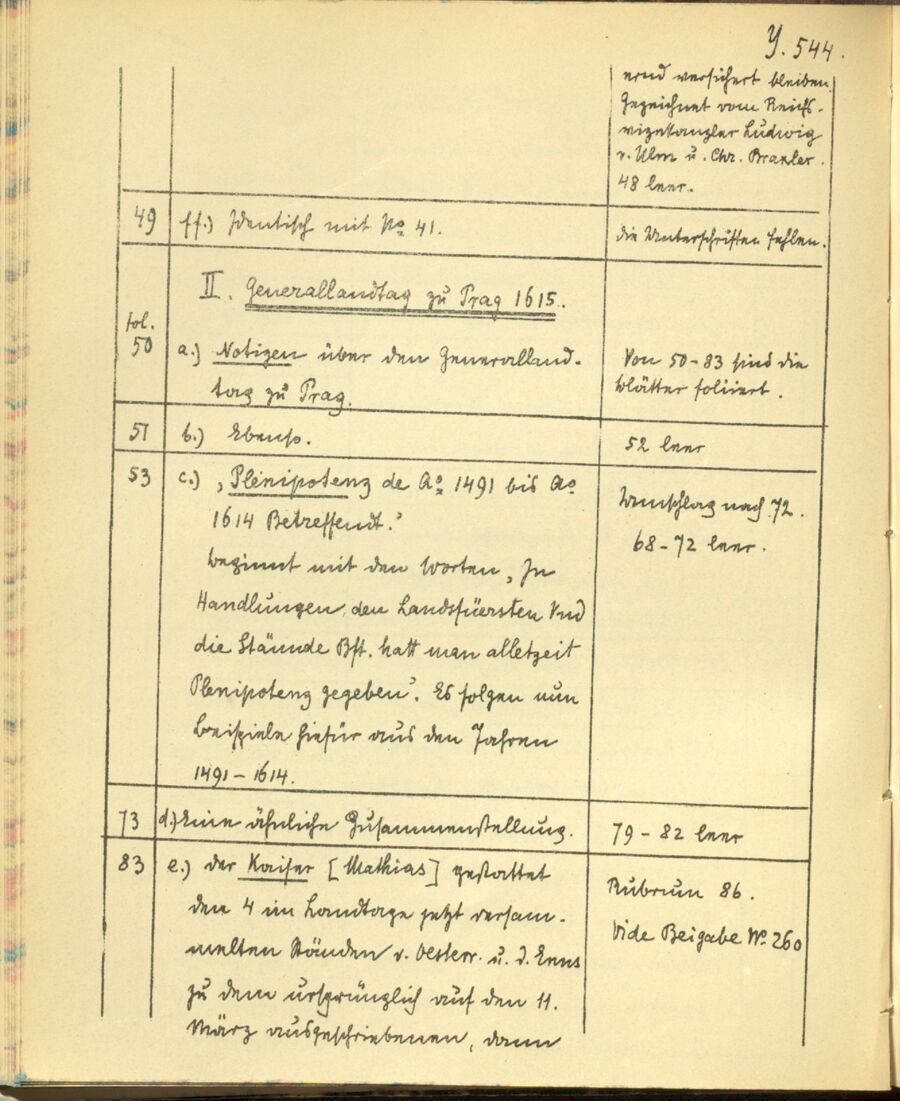 Y. 544.
ernd versichert bleiben.
Gezeichnet vom Reichs-
vizekanzler Ludwig
v. Ulm u. Chr.
48 leer.
49 ff.) Identisch mit No 41.
die Unterschriften fehlen.
II. Generallandtag zu Prag 1615.
fol.
50 a.) Notizen über den Generalland-
tag zu Prag.
Von 50-83 sind die
Blätter foliiert.
51 b.) Ebenso.
52 leer
53 c.) „Plenipotenz de Ao 1491 bis Ao
1614 Betreffendt.“
beginnt mit den Worten „In
Handlungen den Landsfüersten Vnd
die Stäunde Bft. hatt man alletzeit
Plenipotenz gegeben“. Es folgen nun
Beispiele hiefür aus den Jahren
1491-1614.
Umschlag nach 72.
68-72 leer.
73 d.) Eine ähnliche Zusammenstellung.
79-82 leer
83 e.) der Kaiser [Mathias] gestattet
den 4 im Landtage jetzt versam-
melten Ständen v. Oesterr. u. d. Enns
zu dem ursprünglich auf den 11.
März ausgeschriebenen, dann
Rubrum 86.
Vide Beigabe No 260